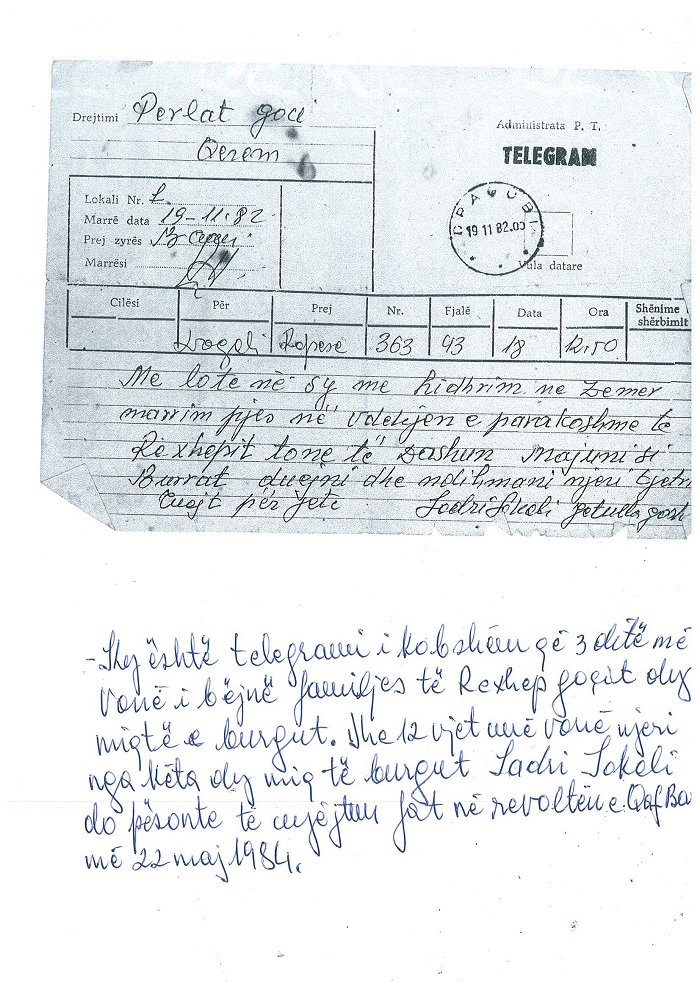 Drejtimi Perlat goci
Qerem
Administrata P. T.
TELEGRAM
Lokali Nr. 2.
Marrë data 19-11.82
Prej zyrës
Marrësi
19 11 82.00
Vula datare
Cilësi Për Prej Nr. Fjalë Data Ora Shënime shërbimit
Dragobi Repese 363 43 18 12.50
Me lote në sy me hidhrim ne zemer
marrim pjes në vdekjen e parakoshme te
Rexhepit tone të Dashun Majuni si
Burrat duejni dhe ndihmani njeri tjetri
Tuajt për jete Sadri Sokoli
- Ky është telegrami i kobshëm që 3 ditë më
vonë i bëjnë familjes të Rexhep goçit dy
miqtë e burgut. Dhe 12 vjet më vonë njeri
nga këta dy miq të burgut Sadri Sokoli
do pësonte të njëjtin fat në revoltën e Qaf Ba
më 22 maj 1984.